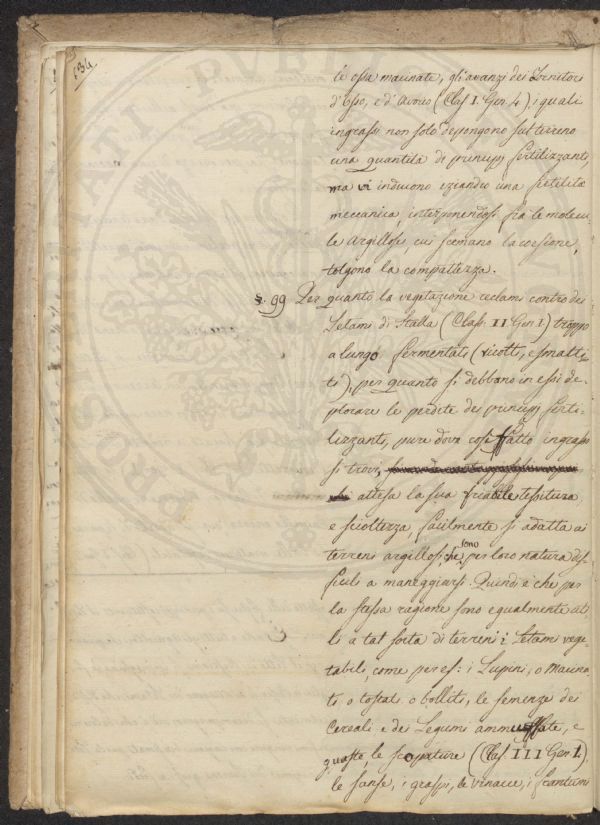 134
le ossa macinate, gli avanzi dei Tornitori
d'Osso, e d'Avorio (Clas. I. Gen. 4), i quali
ingrassi non solo depongono sul terreno
una quantità di principj fertilizzanti,
ma vi inducono eziandio una fertilità
meccanica, interponendosi fra le molecu-
le Argillose, cui scemano la coesione,
tolgono la compattezza.
§. 99 Per quanto la vegetazione reclami contro dei
Letami di Stalla (Class. II Gen. I) troppo
a lungo fermentati (ricotti, e smalti-
ti), per quanto si debbono in essi de-
plorare le perdite dei principj ferti-
lizzanti, pure dove così fatto ingrasso
si trovi,
attesa la sua friabile tessitura
e scioltezza, facilmente si adatta ai
terreni argillosi, che sono per loro natura dif-
ficili a maneggiarsi. Quindi è che per
la stessa ragione sono egualmente uti-
li a tal sorta di terreni i Letami vege-
tabili, come per es: i Lupini, o Macina-
ti, o tostati o bolliti, le semenze dei
Cereali e dei Legumi ammuffate, e
guaste, le scopature (Clas. III Gen. 1),
le sanse, i graspi, le vinacce, i frantumi
PROSPERITATI PVBLICAE